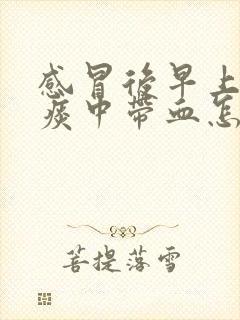 感冒後早上
痰中帶血怎
菩提落雪